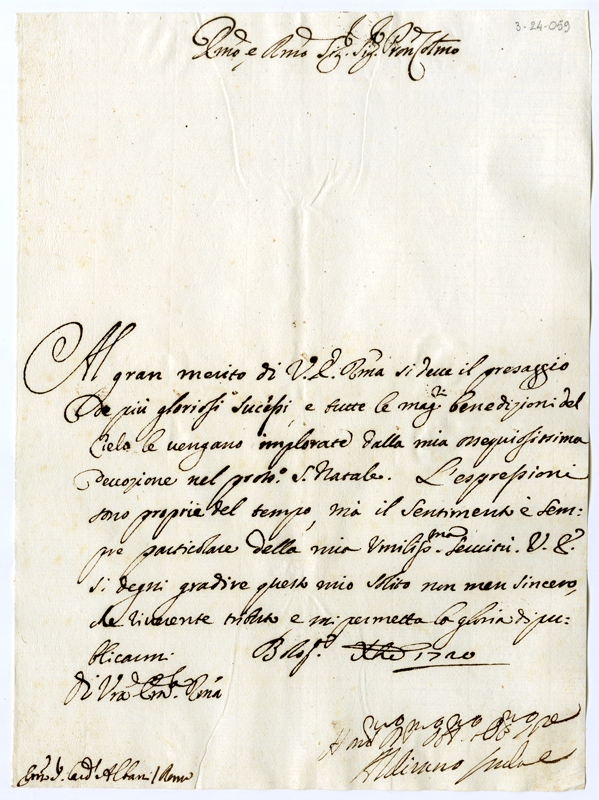 3-24-059
Emo e Rmo Sig. Sig. Pron Colmo
Al gran merito di V. E. Rma si deve il presaggio
de più gloriosi sucessi, e tutte le magri benedizioni del
Cielo le vengano implorate dalla mia ossequiosissima
Devozione nel pross.o S. Natale. L'espressioni
sono proprie del tempo, mà il sentimento è sem-
pre particolare della mia Umiliss.ma Servitù. V. E.
si degni gradire questo mio solito non men sincero,
che riverente tributo e mi permetta la gloria di pu-
blicarmi. Bolog.a Xbre 1720
di Vra Em.a Rma
Aldirano
Em.o S. Card.l Albani / Roma